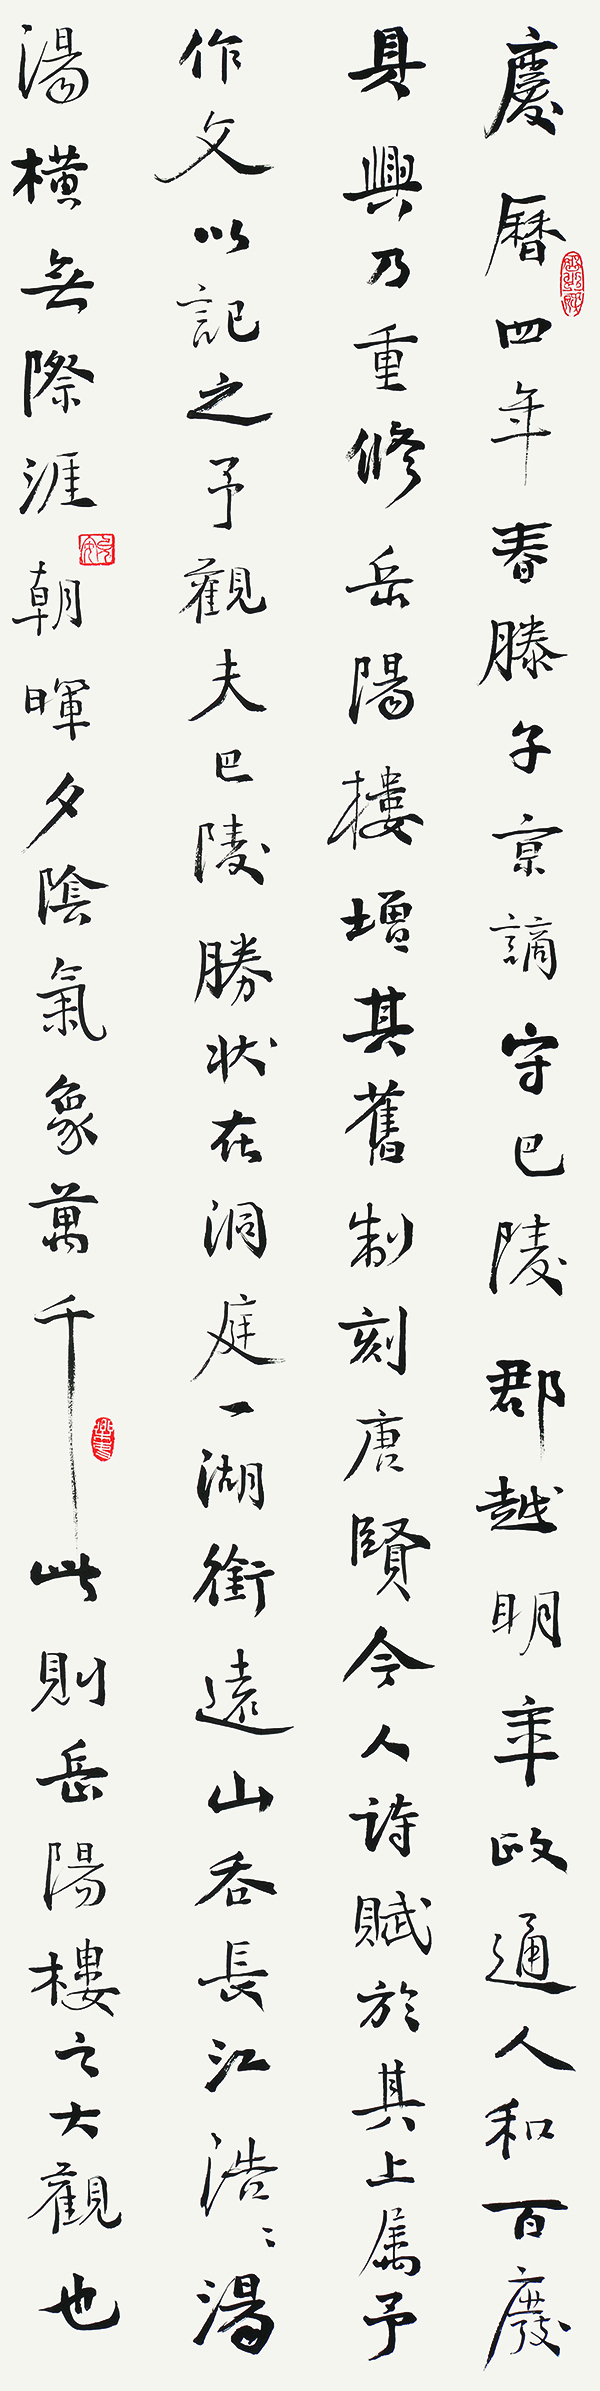 慶曆四年春滕子京謫守巴陵郡越明年政通人和百廢
具興乃重修岳陽樓增其舊制刻唐賢今人詩賦於其上属予
作文以記之予觀夫巴陵勝狀在洞庭一湖銜遠山吞長江浩〻湯
湯橫无際涯朝暉夕陰氣象萬千此則岳陽樓之大觀也